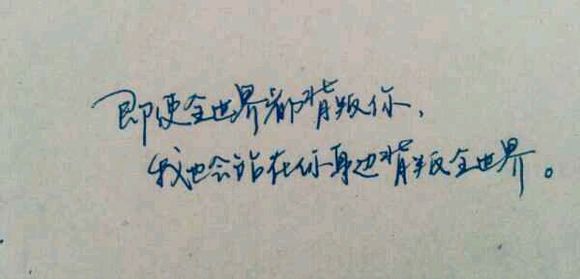 即便全世界都背叛你，
我也会站在你身边背叛全世界。